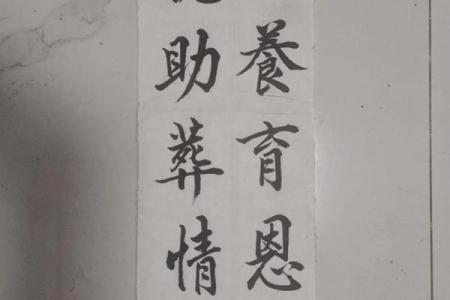 養育恩
助葬情